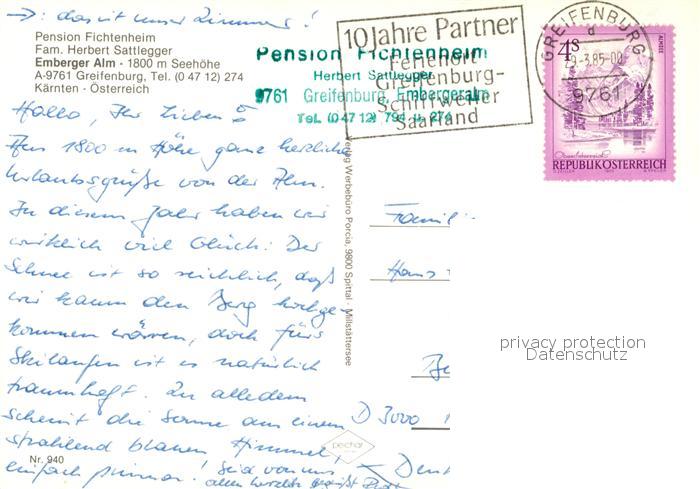 →: das ist unser Zimmer!
Pension Fichtenheim
Fam. Herbert Sattlegger
Emberger Alm · 1800 m Seehöhe
A-9761 Greifenburg, Tel. (0 47 12) 274
Kärnten · Österreich
Pension Fichtenheim
Herbert Sattlegger
9761 Greifenburg, Embergeralm
Tel. (0 47 12) 794 u. 274
10 Jahre Partner
Ferienort
Greifenburg-
Schiffweiler
Saarland
GREIFENBURG
d
-3.85-00
9761
4S
ALMSEE
REPUBLIK ÖSTERREICH
Hallo, Ihr Lieben!
Aus 1800 m Höhe ganz herzliche
Urlaubsgrüße von der Alm.
In diesem Jahr haben wir
wirklich viel Glück: Der
Schnee ist so reichlich, daß
wir kaum den Berg hochge-
kommen wären, doch fürs
Skilaufen ist es natürlich
traumhaft. Zu alledem
scheint die Sonne am einem
strahlend blauen Himmel,
einfach prima! Seid von uns
allen herzlich gegrüßt
Nr. 940
Verlag Werbebüro Porcia, 9800 Spittal · Millstättersee
peichar
Famil
Hans
D 3000
privacy protection
Datenschutz